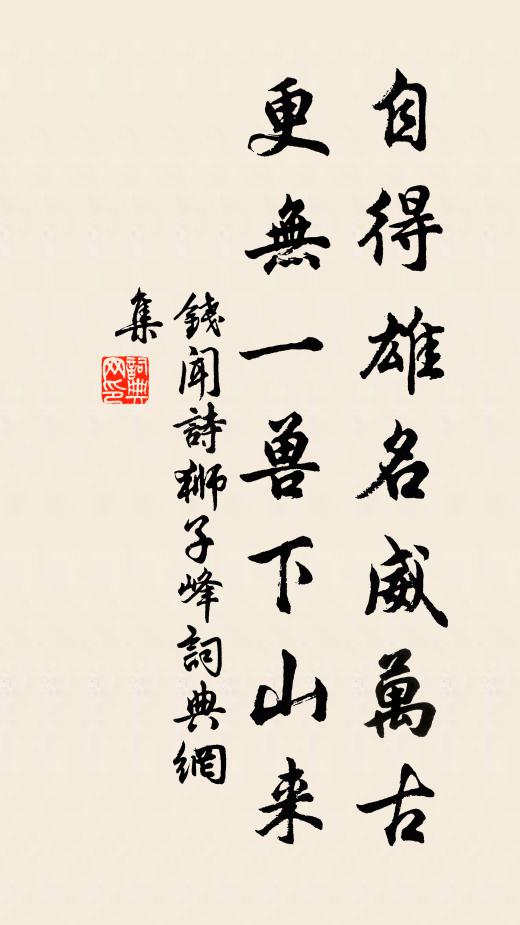 自得雄名威萬古
更無一兽下山来
錢聞詩狮子峰詞典網
集
詞典
网印